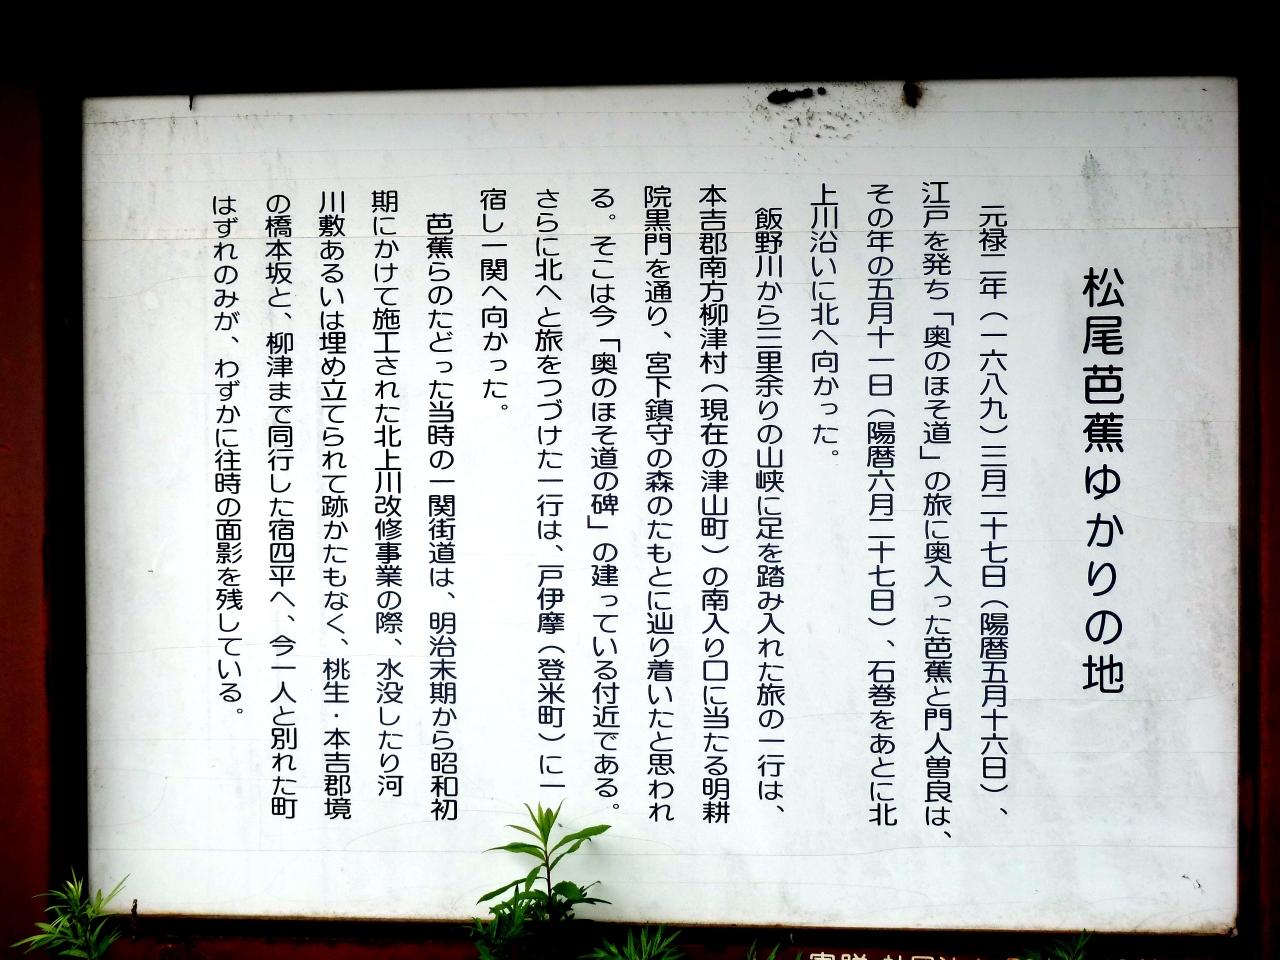 松尾芭蕉ゆかりの地
元禄二年（一六八九）三月二十七日（陽暦五月十六日）、
江戸を発ち「奥のほそ道」の旅に奥入った芭蕉と門人曽良は、
その年の五月十一日（陽暦六月二十七日）、石巻をあとに北
上川沿いに北へ向かった。
飯野川から三里余りの山峡に足を踏み入れた旅の一行は、
本吉郡南方柳津村（現在の津山町）の南入り口に当たる明耕
院黒門を通り、宮下鎮守の森のたもとに辿り着いたと思われ
る。そこは今「奥のほそ道の碑」の建っている付近である。
さらに北へと旅をつづけた一行は、戸伊摩（登米町）に一
宿し一関へ向かった。
芭蕉らのたどった当時の一関街道は、明治末期から昭和初
期にかけて施工された北上川改修事業の際、水没したり河
川敷あるいは埋め立てられて跡かたもなく、桃生・本吉郡境
の橋本坂と、柳津まで同行した宿四平へ、今一人と別れた町
はずれのみが、わずかに往時の面影を残している。